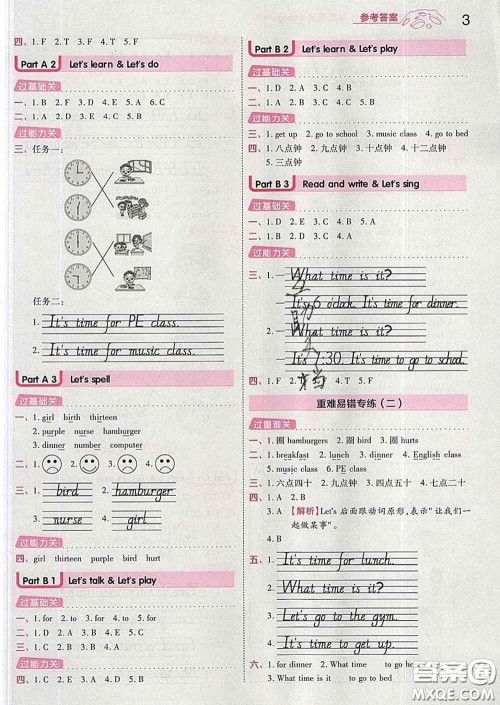 参考答案
3
四. 1. F  2. T  3. T  4. F  5. F
Part A 2  Let's learn & Let's do
过基础关
一. 1. B  2. F  3. D  4. E  5. A  6. C
二. 1. A  2. D  3. C  4. E  5. B
过能力关
三. 任务一:
任务二:
1. It's time for PE class.
2. It's time for music class.
Part A 3  Let's spell
过基础关
一. 1. girl  birth  thirteen
2. purple  nurse  hamburger
3. dinner  number  computer
二. 1.  2.  3.  4.
三. 1. bird  2. hamburger
3. nurse  4. girl
过能力关
四. girl  thirteen  purple  bird  hurt
Part B 1  Let's talk & Let's play
过基础关
一. 1. for  2. to  3. to  4. for  5. for
二. 1. D  2. A  3. B  4. E  5. C
三. 1. A  2. A  3. B  4. A
过能力关
四. 1. C  2. E  3. A  4. D  5. B
Part B 2  Let's learn & Let's play
过基础关
一. 1. D  2. A  3. C  4. B
二. 1. C  2. A  3. B  4. A  5. B
过能力关
三. 1. get up  2. go to school  3. music class  4. go to bed
四. 1. 八点钟  2. 九点钟  3. 十点钟  4. 十二点钟
5. 三点钟
Part B 3  Read and write & Let's sing
过基础关
一. 1. D  2. E  3. C  4. B  5. A
二. 1. B  2. C  3. A  4. B  5. A
过能力关
三. 1. —What time is it?
—It's 6 o'clock. It's time for dinner.
2. —What time is it?
—It's 7:30. It's time to go to school.
四. 1. F  2.  4. T  5. F
重难易错专练(二)
过重难关
一. 1. 圈 hamburger  2. 圈 bird  3. 圈 hurts
二. 1. breakfast  2. lunch  3. dinner  4. English class
5. music class  6. PE class
三. 1. 六点四十  2. 九点钟  3. 四点五十  4. 七点二十
四. 1. A  2. B
3. A 【解析】Let's 后面跟动词原形,表示“让我们一
起做某事”。
五. 1. It's time for lunch.
2. It's time for dinner.
3. Let's go to the gym.
4. It's time to get up.
六. 1. for dinner  2. What time  to go home
3. What time is it  to go to bed
答案圈
MXQE.COM